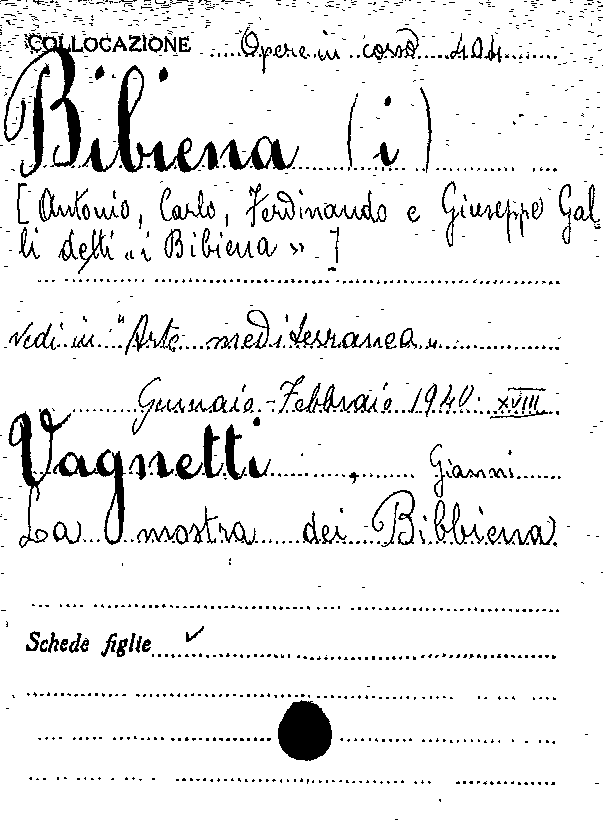 COLLOCAZIONE Opere in corso 404
Bibiena (i)
[Antonio, Carlo, Ferdinando e Giuseppe Gal=
li detti «i Bibiena»]
vedi in "Arte mediterranea"
Gennaio-Febbraio 1940. XVIII
Vagnetti, Gianni
La mostra dei Bibbiena.
Schede figlie ✓